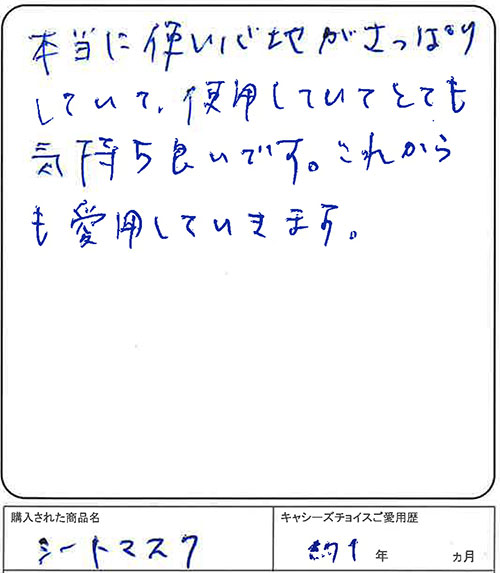 本当に使い心地がさっぱり
していて、使用していてとても
気持ち良いです。これから
も愛用していきます。
購入された商品名
シートマスク
キャシーズチョイスご愛用歴
約1年 ヵ月